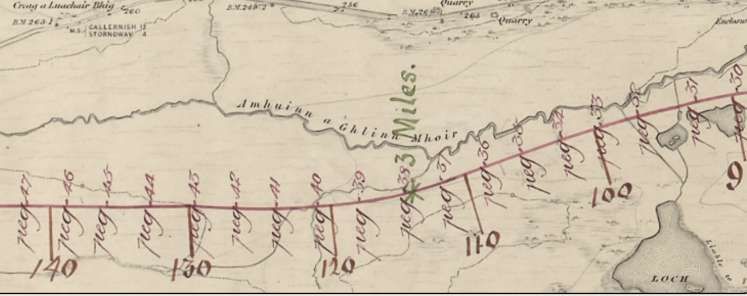 Creag a Luachair Bhig
260
B.M. 263·1
M.S.
CALLERNISH 12
STORNOWAY 4
256
Quarry
265
Quarry
Amhuinn a' Ghlinn Mhoir
3 Miles.
peg 47
peg 46
peg 45
peg 44
peg 43
peg 42
peg 41
peg 40
peg 39
peg 38
peg 37
peg 36
peg 35
peg 34
peg 33
peg 32
peg 31
peg 30
140
130
120
110
100
9
LOCH